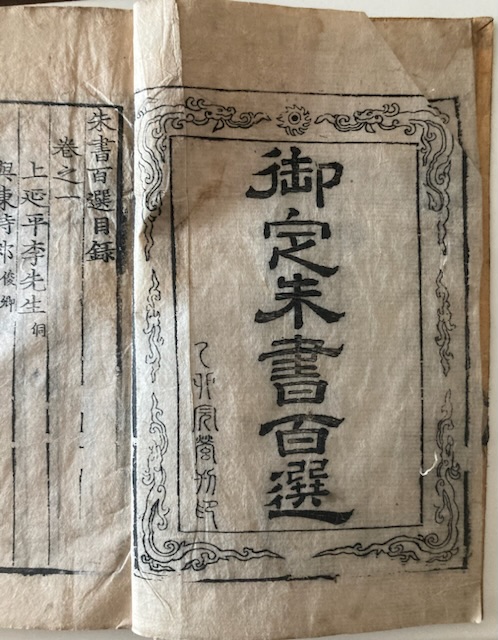 御定朱書百選
乙卯完營刊印
朱書百選目錄
卷之一
上延平李先生侗
與陳侍郎俊卿